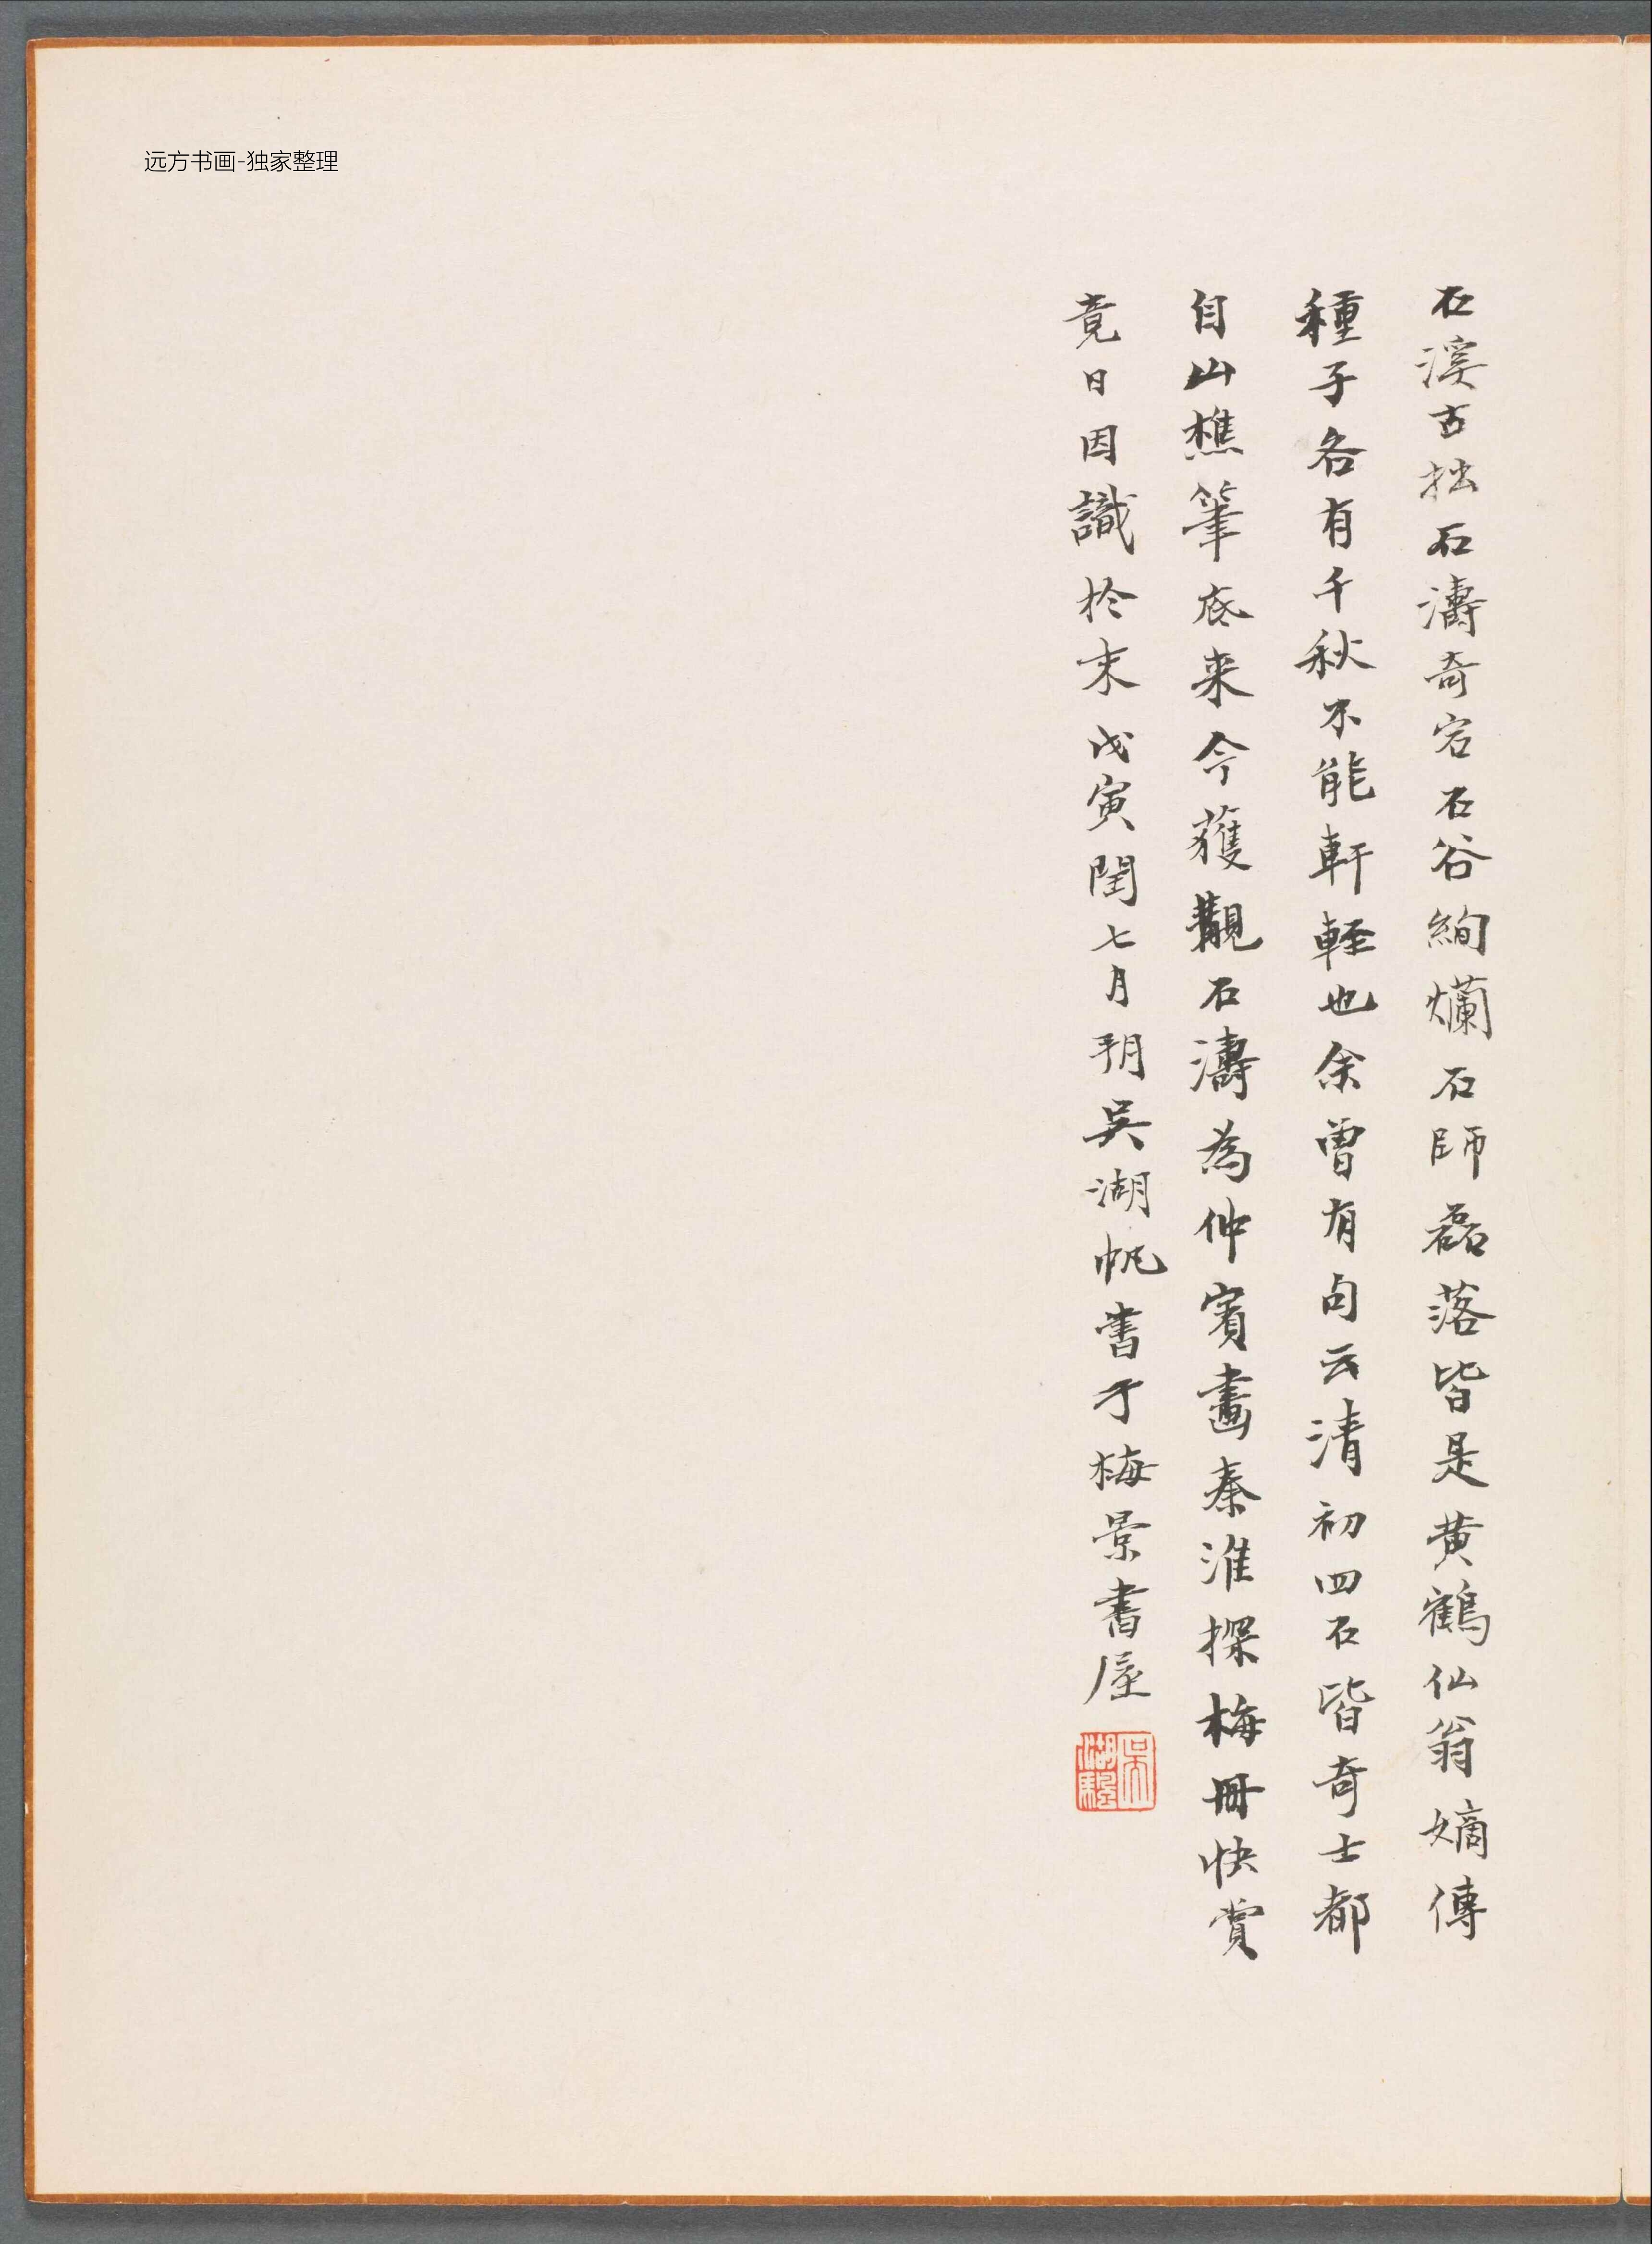 远方书画-独家整理
石溪古拙石濤奇宕石谷絢爛石師磊落皆是黄鶴仙翁嫡傳
種子各有千秋不能軒輊也余曾有句云清初四石皆奇士都
自山樵筆底来今獲觀石濤為仲賓畫秦淮探梅冊快賞
竟日因識於末戊寅閏七月朔吳湖帆書于梅景書屋
吳湖颿